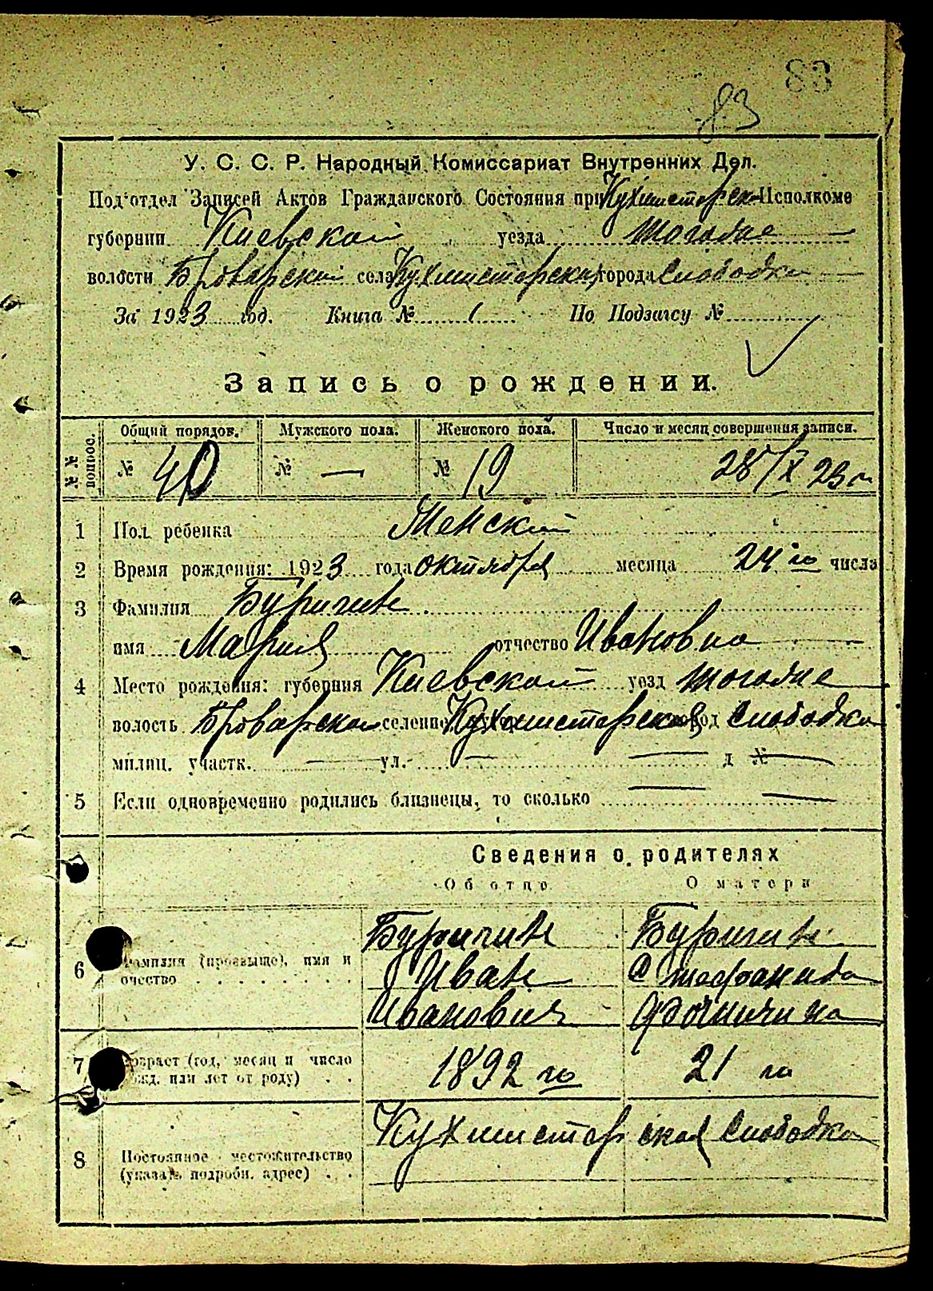 83
83
У. С. С. Р. Народный Комиссариат Внутренних Дел.
Подотдел Записей Актов Гражданского Состояния при Кухмистерск. Исполкоме
губернии Киевской уезда тогоже
волости Броварской села Кухмистерская города Слободка
За 1923 год. Книга № 1 По Подзагсу №
Запись о рождении.
№№ вопрос. Общий порядов. Мужского пола. Женского пола. Число и месяц совершения записи.
№ 40 № — № 19 28/X 23 г
1 Пол ребенка Женский
2 Время рождения: 1923 года октября месяца 24 го числа
3 Фамилия Буригин
имя Мария отчество Ивановна
4 Место рождения: губерния Киевской уезд тогоже
волость Броварская селение Кухмистерская город Слободка
милиц. участк. — ул. — д № —
5 Если одновременно родились близнецы, то сколько — —
Сведения о родителях
Об отце О матери
6 Фамилия (прозвыще), имя и очество
Буригин Буригин
Иван
Иванович
7 Возраст (год, месяц и число рожд. или лет от роду) 1892 го 21 го
8 Постоянное местожительство (указать подробн. адрес)
Кухмистерская Слободка